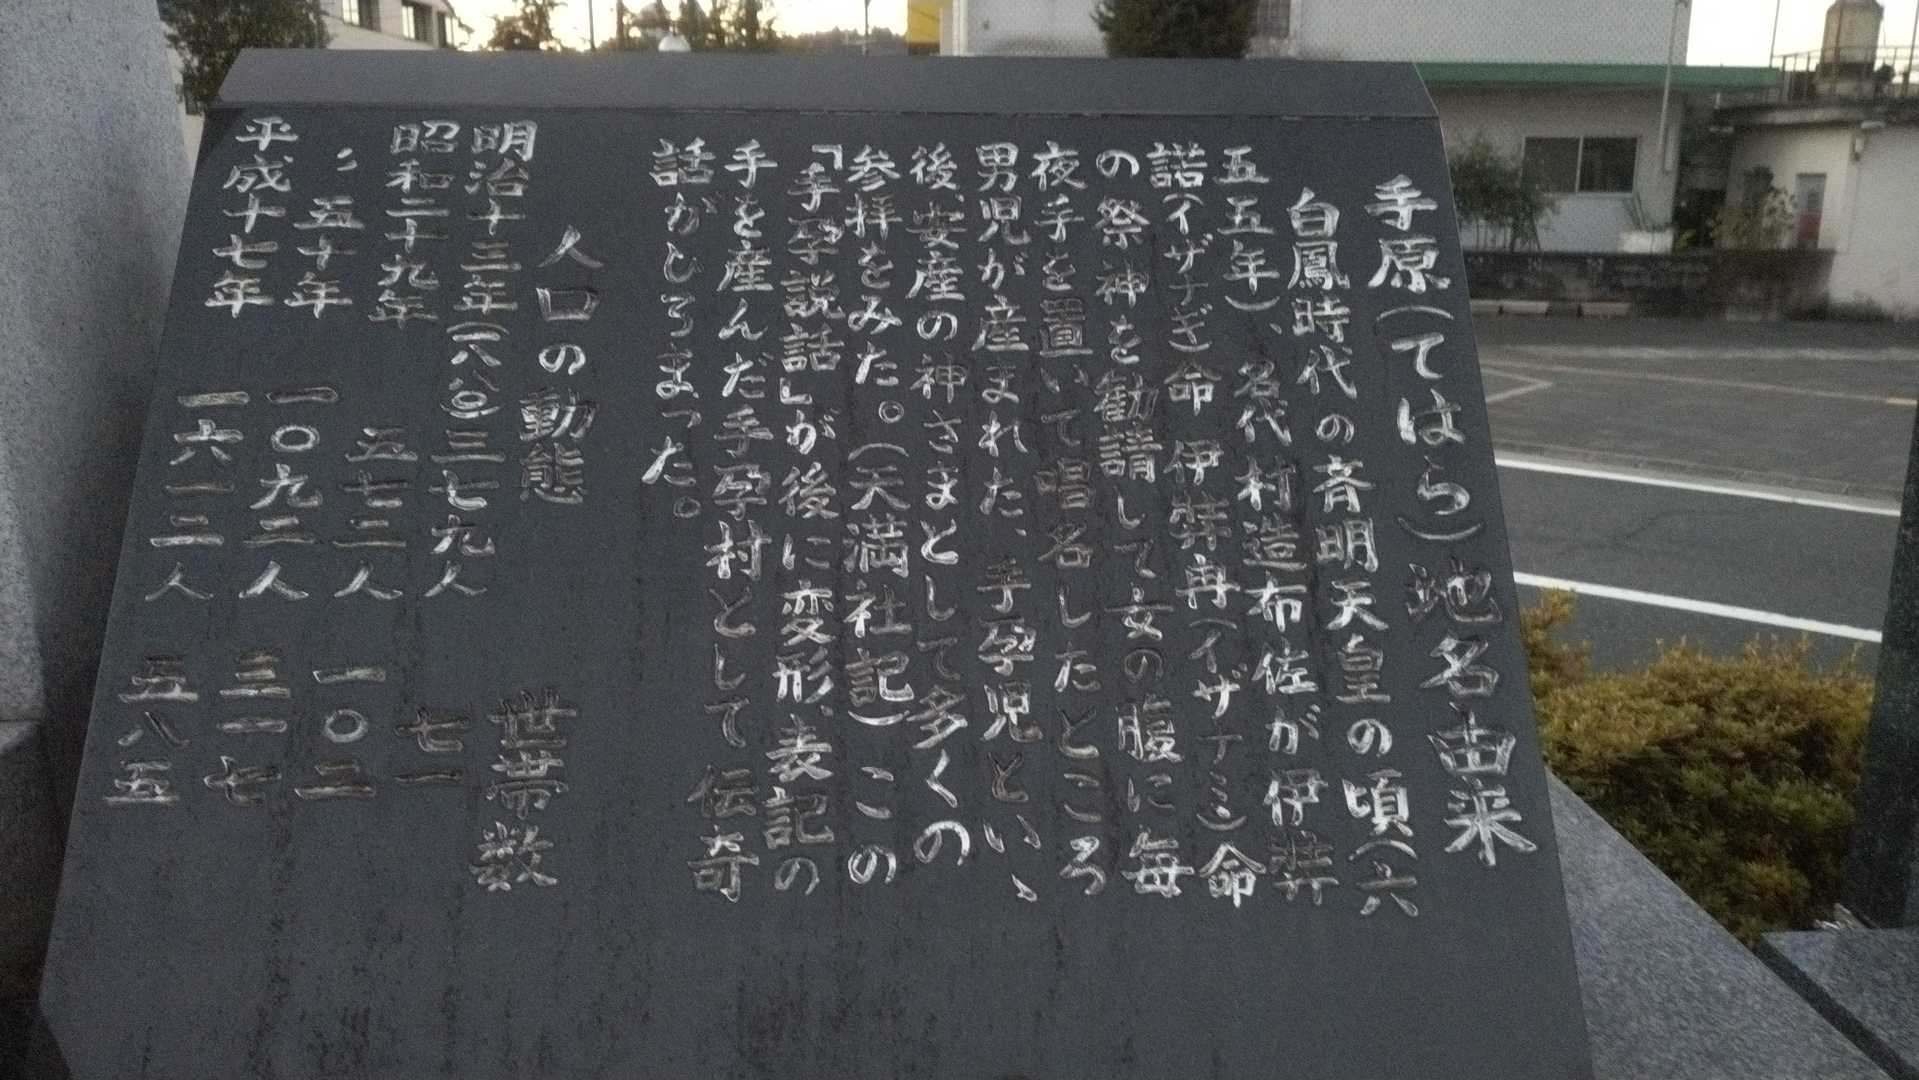 手原(てはら)地名由来
白鳳時代の斉明天皇の頃(六
五五年)、名代村造布佐が伊弉
諾(イザナぎ)命 伊弉冉(イザナミ)命
の祭神を勧請して女の腹に毎
夜手を置いて唱名したところ
男児が産まれた、手孕児といい、
後、安産の神さまとして多くの
参拝をみた。(天満社記)この
「手孕説話」が後に変形、表記の
手を産んだ手孕村として伝奇
話がひろまった。
人口の動態 世帯数
明治十三年(一八八〇)三七九人 七一
昭和二十九年 五七二人 一〇二
〃 五十年 一〇九二人 三一七
平成十七年 一六一二人 五八五